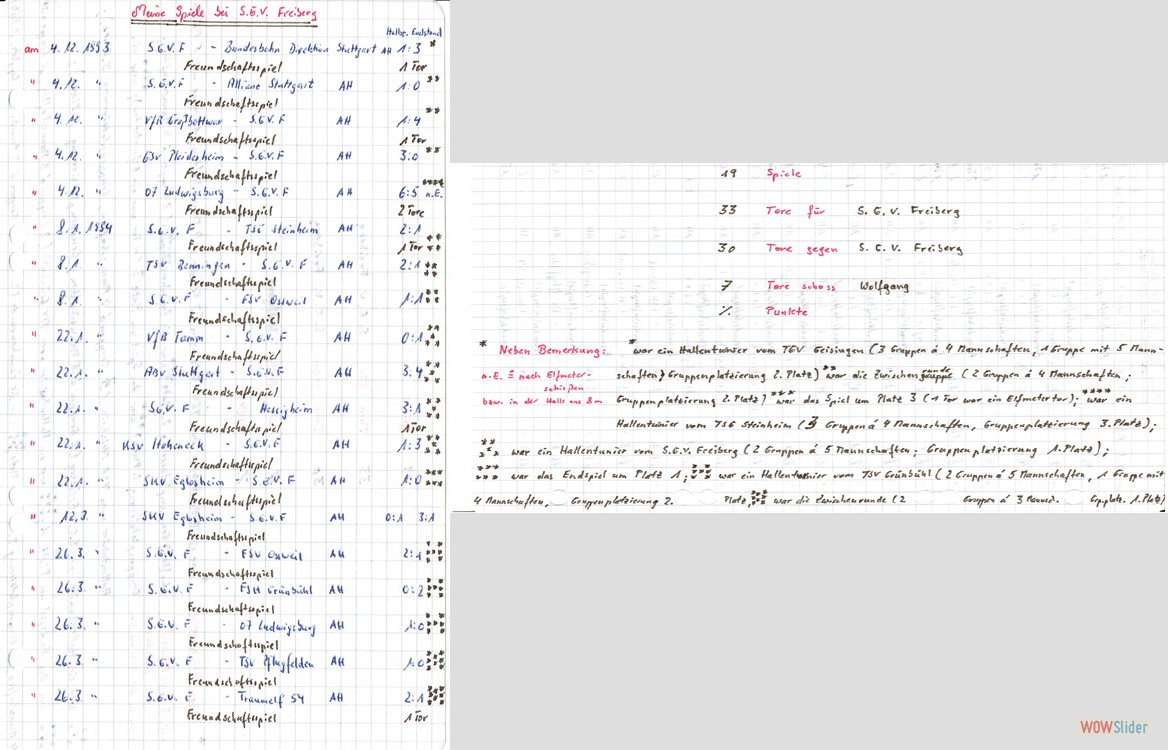 Meine Spiele bei S.G.V. Freiberg
Halbz. Endstand
am 4.12.1993 S.G.V.F - Bundesbahn Direktion Stuttgart AH 1:3 *
Freundschaftsspiel 1 Tor
" 4.12. " S.G.V.F - Allianz Stuttgart AH 1:0 **
Freundschaftsspiel
" 4.12. " VfB Großbottwar - S.G.V.F AH 1:4 **
Freundschaftsspiel 1 Tor
" 4.12. " GSV Pleidesheim - S.G.V.F AH 3:0 **
Freundschaftsspiel
" 4.12. " 07 Ludwigsburg - S.G.V.F AH 6:5 n.E. ***
Freundschaftsspiel 2 Tore
" 8.1.1994 S.G.V.F - TSG Steinheim AH 2:1
Freundschaftsspiel 1 Tor
" 8.1 " TSV Benningen - S.G.V.F AH 2:1
Freundschaftsspiel
" 8.1 " S.G.V.F - FSV Ossweil AH 1:1
Freundschaftsspiel
" 22.1. " VfB Tamm - S.G.V.F AH 0:1
Freundschaftsspiel
" 22.1. " ABV Stuttgart - S.G.V.F AH 3:4
Freundschaftsspiel
" 22.1. " S.G.V.F - Hessigheim AH 3:1
Freundschaftsspiel 1 Tor
" 22.1. " KSV Hoheneck - S.G.V.F AH 1:3
Freundschaftsspiel
" 22.1. " SKV Eglosheim - S.G.V.F AH 1:0
Freundschaftsspiel
" 12.3. " SKV Eglosheim - S.G.V.F AH 0:1 3:1
Freundschaftsspiel
" 26.3. " S.G.V.F - FSV Ossweil AH 2:1
Freundschaftsspiel
" 26.3. " S.G.V.F - Grünbühl AH 0:2
Freundschaftsspiel
" 26.3. " S.G.V.F - 07 Ludwigsburg AH 1:0
Freundschaftsspiel
" 26.3. " S.G.V.F - TSV Pflugfelden AH 1:0
Freundschaftsspiel
" 26.3 " S.G.V.F - Traumelf 54 AH 2:1
Freundschaftsspiel 1 Tor
19 Spiele
33 Tore für S.G.V. Freiberg
30 Tore gegen S.G.V. Freiberg
7 Tore schoss Wolfgang
% Punkte
* Neben Bemerkung: * war ein Hallentunier vom TGV Beisingen (3 Gruppen á 4 Mannschaften, 1 Gruppe mit 5 Mann-
n.E. = nach Elfmeter- schaften) Gruppenplatzierung 2. Platz) ** war die Zwischenrunde (2 Gruppen á 4 Mannschaften;
schießen
bzw. in der Halle aus 8m Gruppenplatzierung 2. Platz) *** war das Spiel um Platz 3 (1 Tor war ein Elfmetertor); **** war ein
Hallentunier vom TSG Steinheim (3 Gruppen á 4 Mannschaften, Gruppenplatzierung 3. Platz);
war ein Hallentunier vom S.G.V. Freiberg (2 Gruppen á 5 Mannschaften; Gruppenplatzierung 1. Platz);
war das Endspiel um Platz 1; war ein Hallentunier vom TSV Grünbühl (2 Gruppen á 5 Mannschaften, 1 Gruppe mit
4 Mannschaften, Gruppenplatzierung 2. Platz, war die Zwischenrunde (2 Gruppen á 3 Mannsch. Grp.platz. 1. Platz)
WOWSlider